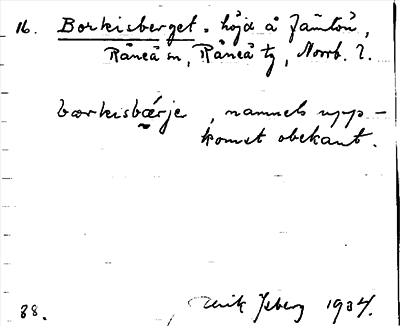 16. Borkisberget. höjd å Jämtön,
Råneå sn, Råneå tg, Norrb. l.
borkisbærje, namnets upp-
komst obekant.
88. Ulrik Isberg 1934.